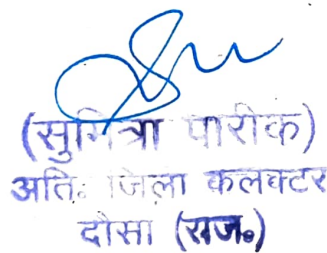 (सुमित्रा पारीक)
अति॰ जिला कलक्टर
दौसा (राज॰)